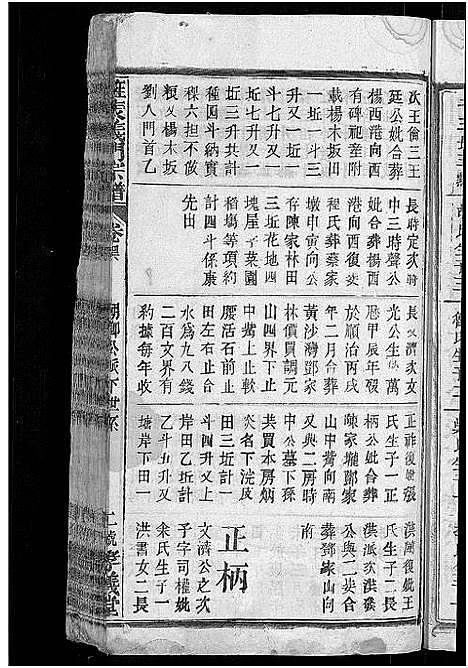 次王翁三王
廷公妣合葬
楊西港向西
有碑祀塋附
載楊木坂田
一坵一斗三
升又一坵一
斗七升又一
坵七升又一
坵三升共計
種四斗納實
稞六担不飯
稞又楊木坂
劉人門首乙
長時定次時
中三時聲公
妣合葬楊西
港向西復娶
程氏葬蔡家
墩申寅向公
存陳家林田
三坵花地四
塊屋子菜園
稻塲等項約
計四斗係康
先田
長文濟次文
光公生於萬
曆甲辰年歿
於順治丙戌
年二月合葬
黃沙灣鄧家
林價買調元
山四界下止
中嘴上止軟
腰活石前止
田左右止淀
水爲九八錢
二百文界有
約據每年收
正祚復娶張
氏生子一正
柄公妣合葬
陳家壠鄧家
山中嘴向南
又與二房時
中公墓下孫
共買水房炳
炎名下浣皮
田三坵計一
斗四升又上
岸田乙坵計
乙斗五升又
塘岸下田一
洪圖復娶王
氏生子二長
洪派次洪猷
公與二妣合
葬鄧家山向
南
正柄
文濟公之次
子字司權妣
余氏生子一
洪書女二長
卷
二號孝義堂